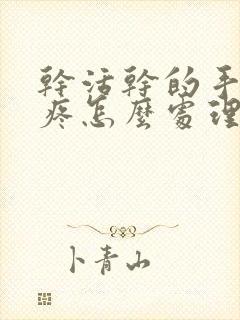 幹活幹的手
疼怎麼處理
卜青山